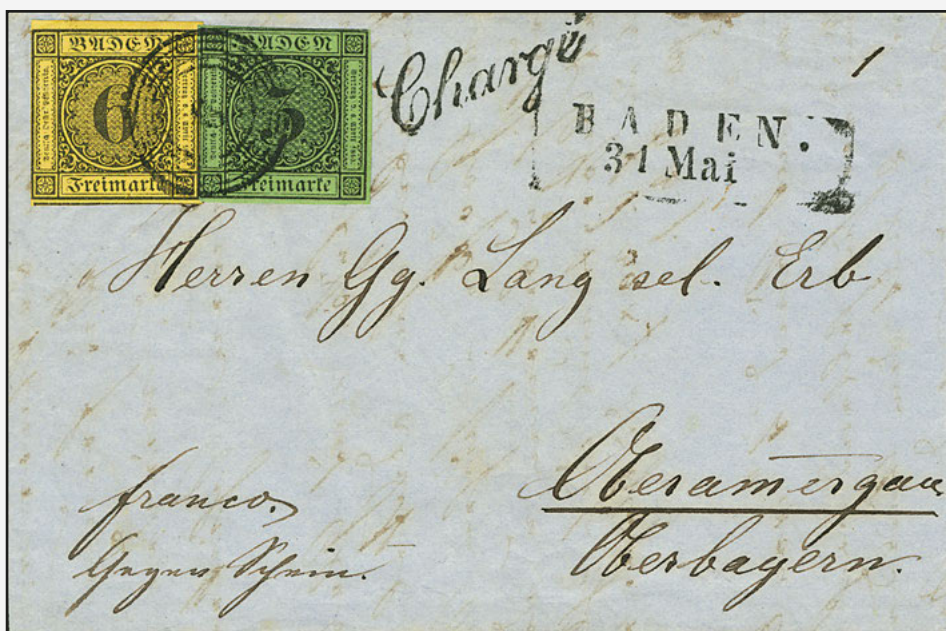 BADEN
6
Freimarke
BADEN
3
Freimarke
Chargé
1
BADEN.
31 Mai
Herren Gg. Lang sel. Erb
Oberamergau
Oberbayern.
franco.
Gegen Schein.